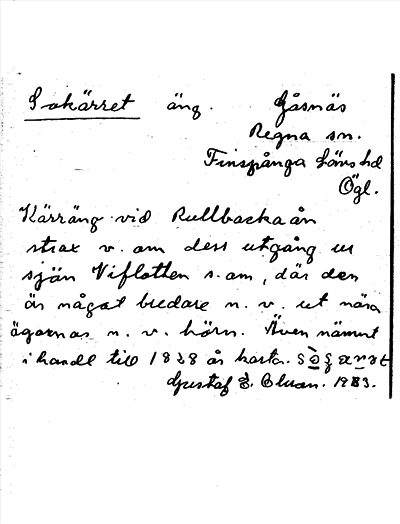 S-okärret äng. Gåsnäs
Regna sn.
Finspånga Läns hd
Ögl.
Kärräng vid Rullbackaån
strax v. om dess utgång ur
sjön Viflotten s. om, där den
är något bredare n. v. ut nära
ägornas n. v. hörn. Även nämnt
i handl till 18 8 år karta.
Gustaf E. 1933.